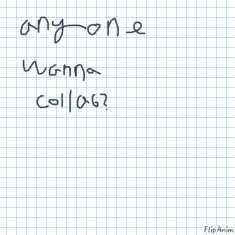 anyone
wanna
collab?
FlipAnim